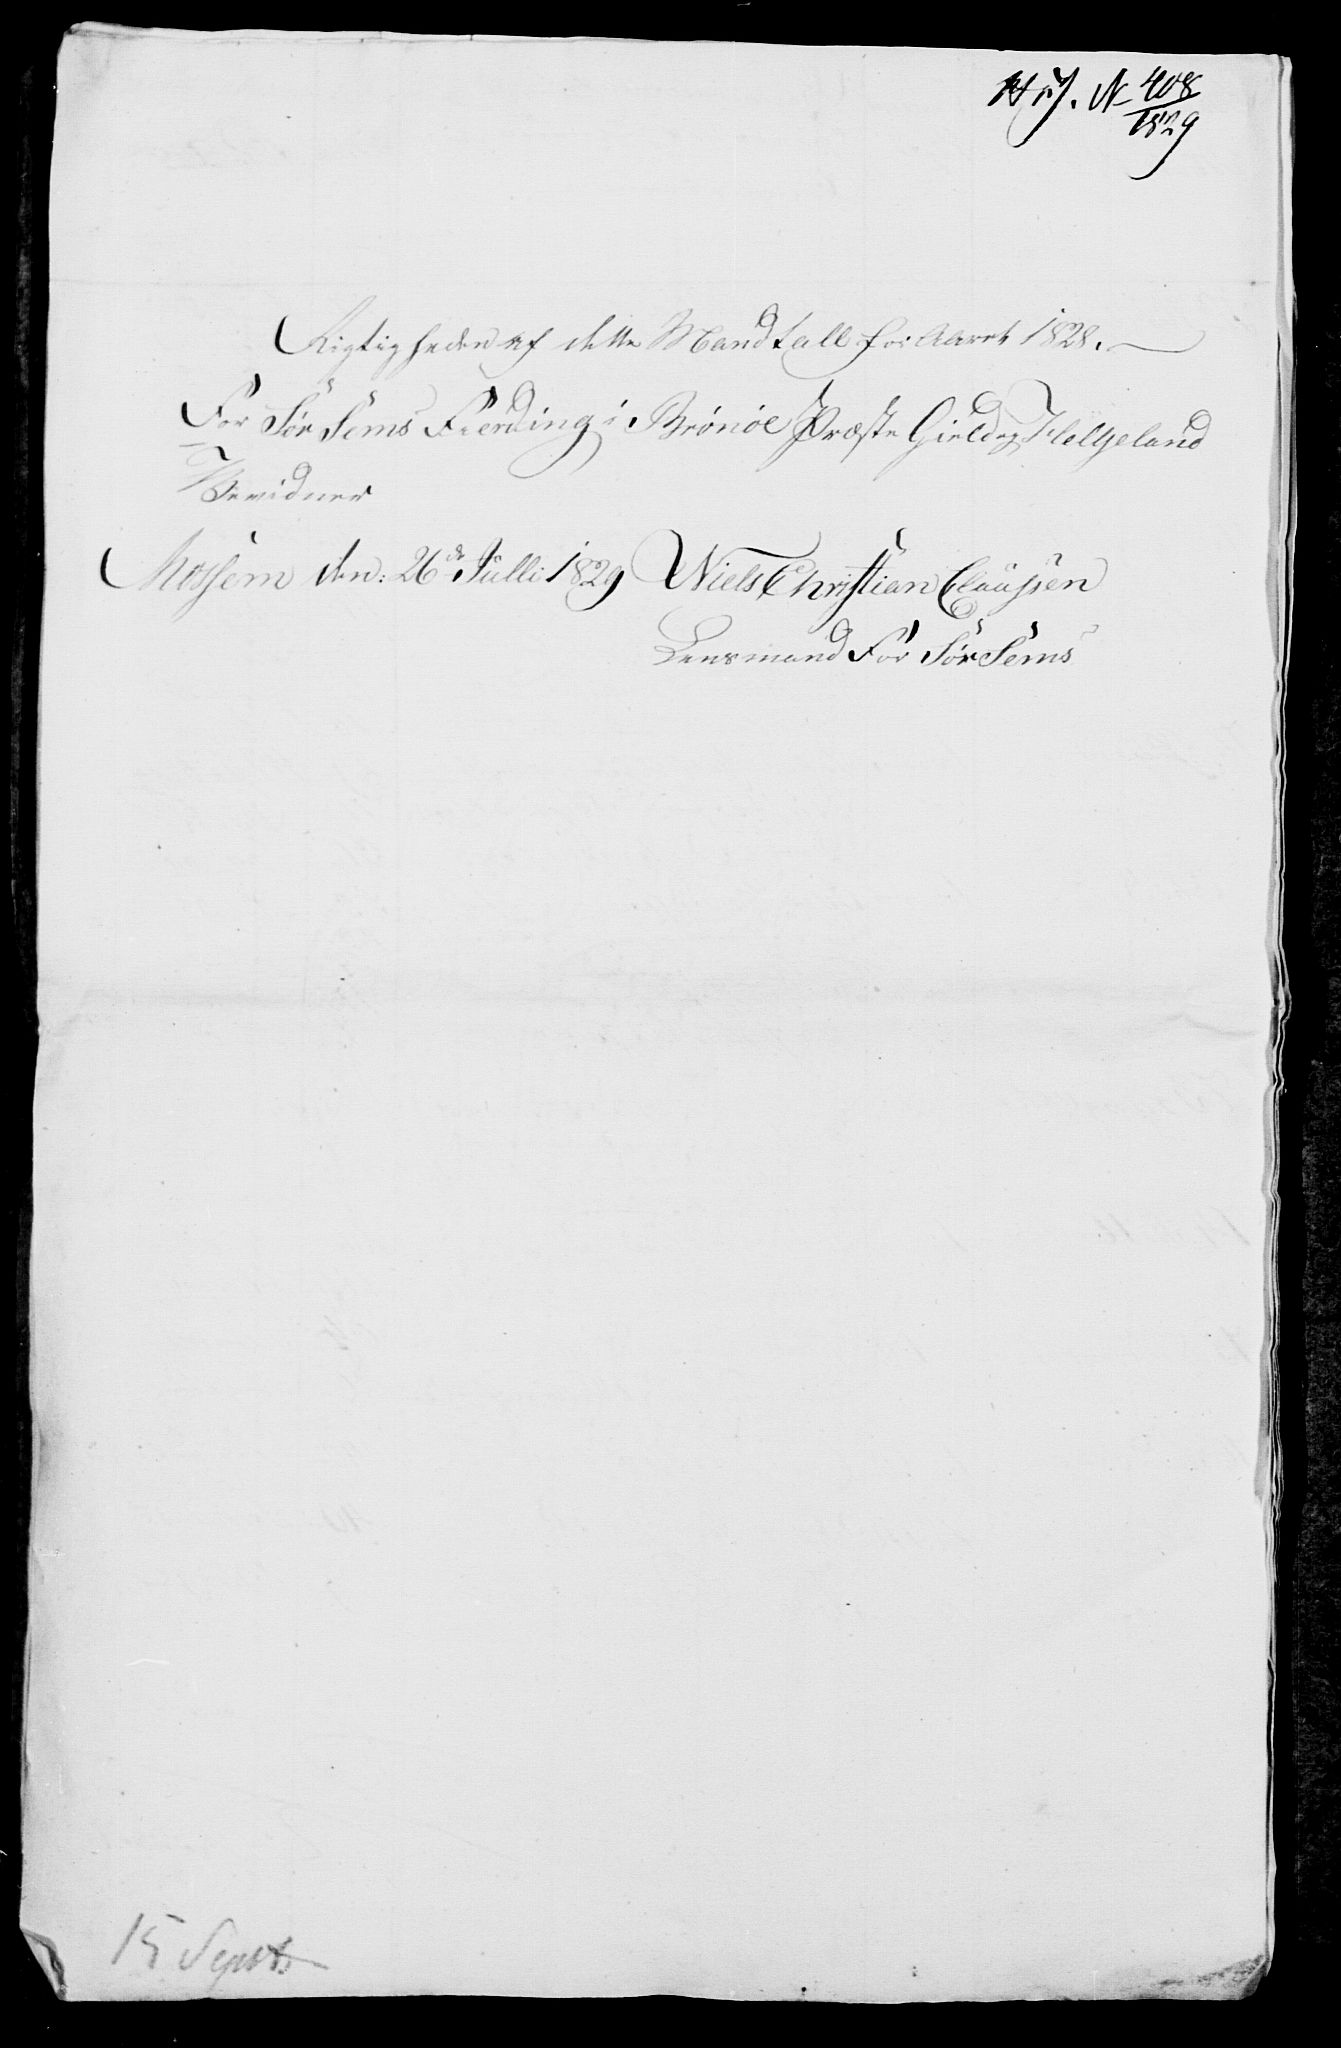 N 408
1829
Rigtigheden af dette Mandtall for Aaret 1828.
For Sör Sems Fierding i Brönöe Præste Gield og Helgeland
Bevidner
Mossem den: 26de Julli 1829 Niels Christian Clausen
Lensmand For Sör Sems
15 Septb